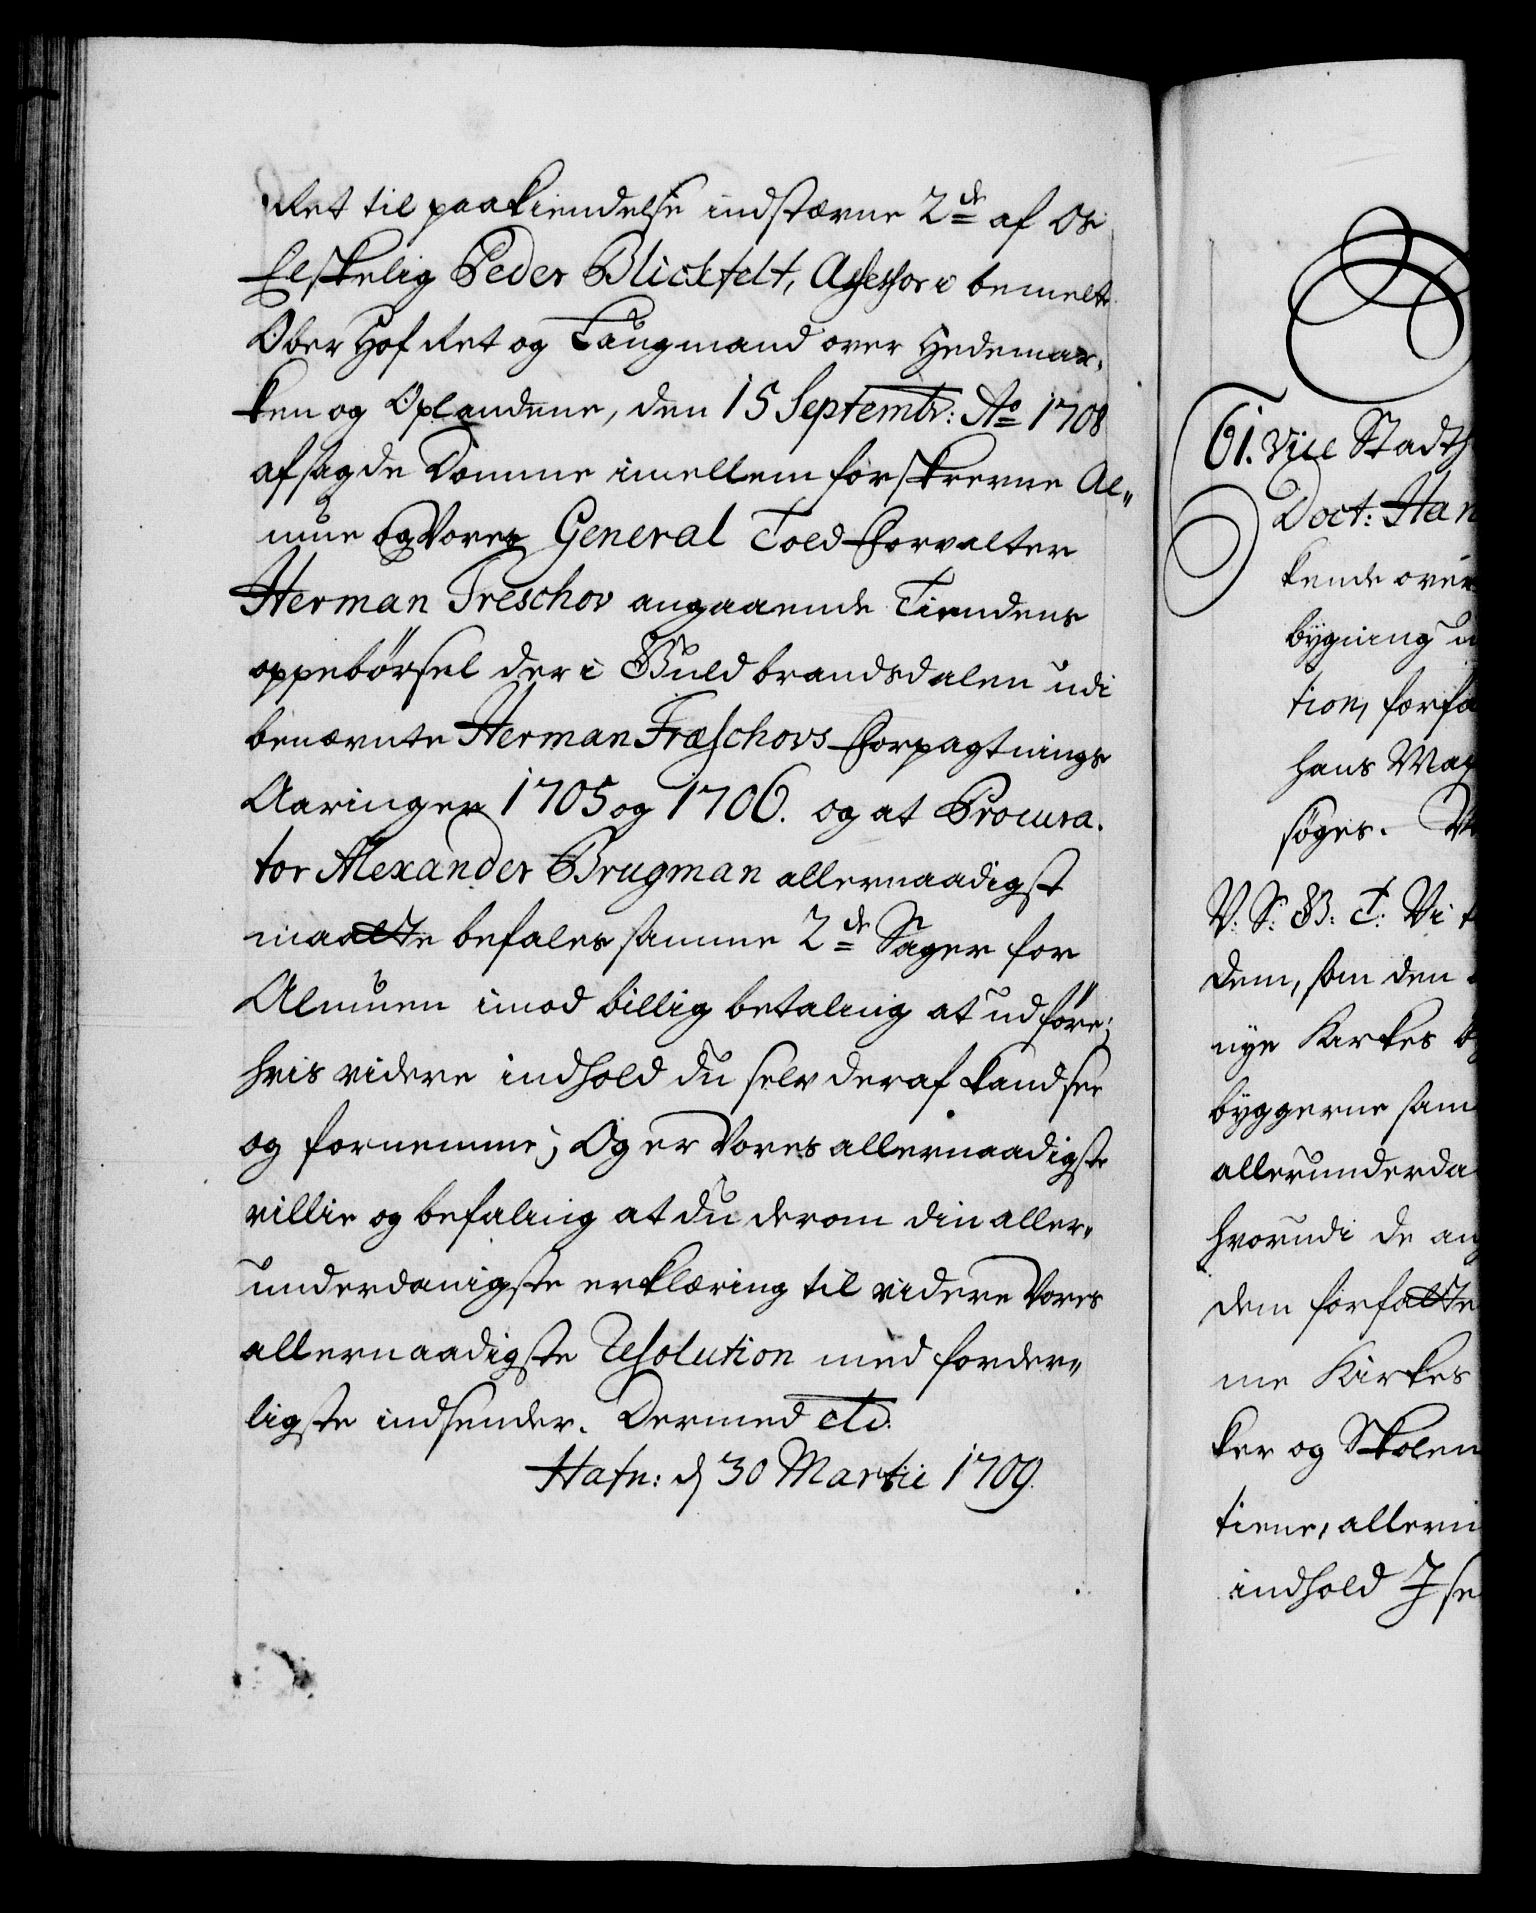 Ret til paakiendelse indstævne 2de af Os
Elskelig Peder Blickfelt, Assessor i bemelte
Ober Hof Ret og Laugmand over Hedemar-
ken og Oplandene, den 15 Septembr: Ao 1708
afsagde Domme imellem forskrevne Al-
mue og Vores General Told Forvalter
Herman Treschov angaaende Tiendens
oppebörsel der i Guldbrandsdalen udi
benævnte Herman Træschovs Forpagtnings
Aaringer 1705 og 1706. og at Procura-
tor Alexander Brugman allernaadigst
maatte befales samme 2de Sager for
Almuen imod billig betaling at udföre;
hvis videre indhold du selv deraf kand see
og fornemme; Og er Vores allernaadigste
villie og befaling at du derom din aller-
underdanigste erklæring til videre Vores
allernaadigste Resolution med forder-
ligste indsender. Dermed etc:
Hafn: d 30 Martii 1709.
61. Vice Stadth
Doct: Han
kende over
bygning u
tion, forfa
hans May
søges.
V: S: G: T: Vi
dem, som den
nye Kirkes
byggerne sam
allerunderda
hvorudi de an
dem forfatte
me Kirkes
ker og Skolen
tiene, allern
indhold I se